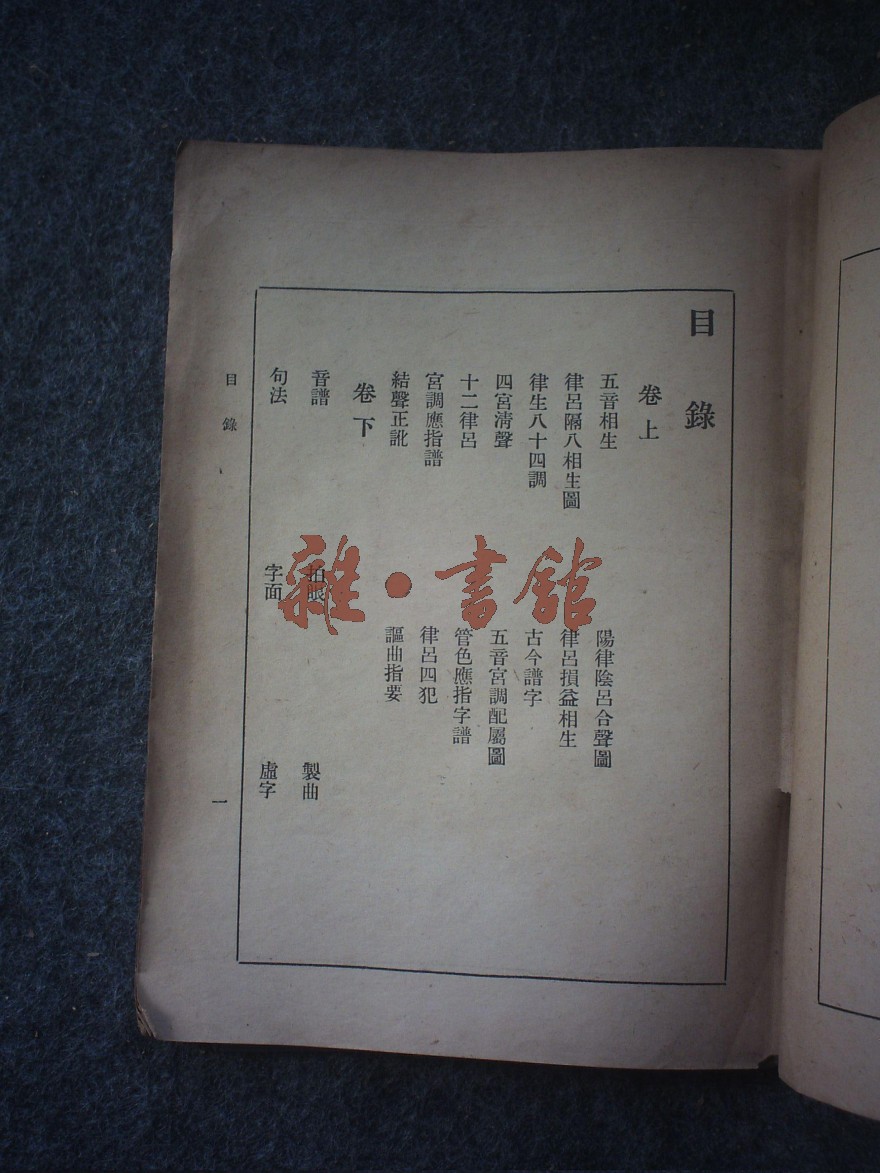 目錄
卷上
五音相生 陽律陰呂合聲圖
律呂隔八相生圖 律呂損益相生
律生八十四調 古今譜字
四宮清聲 五音宮調配屬圖
十二律呂 管色應指字譜
宮調應指譜 律呂四犯
結聲正訛 謳曲指要
卷下
音譜 拍眼 製曲
句法 字面 虛字
目錄 一
雜·書館